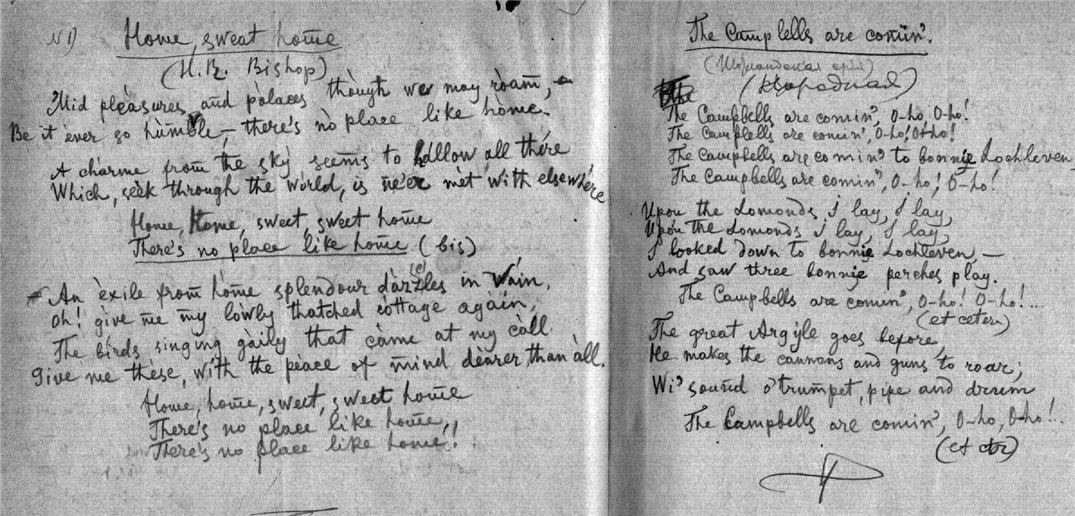 N 1)
Home, sweat home
(H.R. Bishop)
'Mid pleasures and palaces though we may roam,
Be it ever so humble, – there's no place like home.
A charme from the sky seems to hallow all there
Which, seek through the world, is ne'er met with elsewhere
Home, Home, sweet, sweet home
There's no place like home (bis)
An exile from home splendour dazzles in vain,
Oh! give me my lowby thatched cottage again,
The birds singing gaily that came at my call
Give me these, with the peace of mind dearer than all.
Home, home, sweet, sweet home
There's no place like home,,
There's no place like home!
The Campbells are comin'.
(Шотландская арія)
(Народная)
The Campbells are comin', O-ho, O-ho!
The Camplells are comin', O-ho! O-ho!
The Campbells are comin' to bonnie Lochleven
The Campbells are comin', O-ho! O-ho!
Upon the Lomonds I lay, I lay,
Upon the Lomonds I lay, I lay,
I looked down to bonnie Lochleven –
And saw three bonnie perches play.
The Campbells are comin', O-ho! O-ho!...
(et cetera)
The great Argyle goes before,
He makes the cannons and guns to roar,
Wi' sound o' trumpet, pipe and drum
The Campbells are comin', O-ho, O-ho!..
(et ctr)